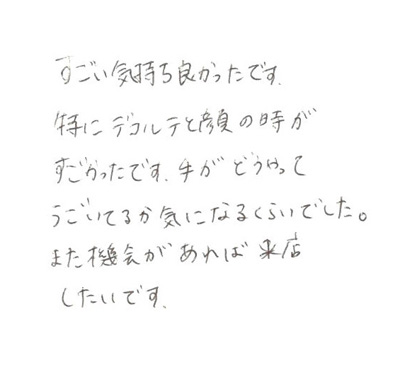 すごい気持ち良かったです.
特にデコルテと顔の時が
すごかったです. 手がどうやって
うごいてるか気になるくらいでした。
また機会があれば来店
したいです.